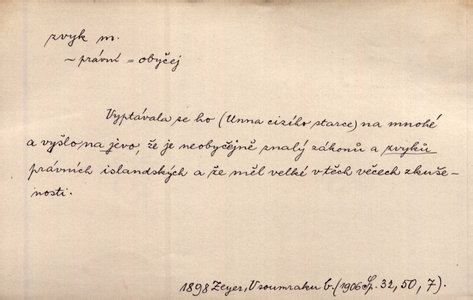 zvyk m.
~ právní = obyčej
Vyptávala se ho (Unna cizího starce) na mnohé
a vyšlo na jevo, že je neobyčejně znalý zákonů a zvyků
právních islandských a že měl velké v těch věcech zkuše-
nosti.
1898 Zeyer, V soumraku b. (1906 Sp. 32, 50, 7).